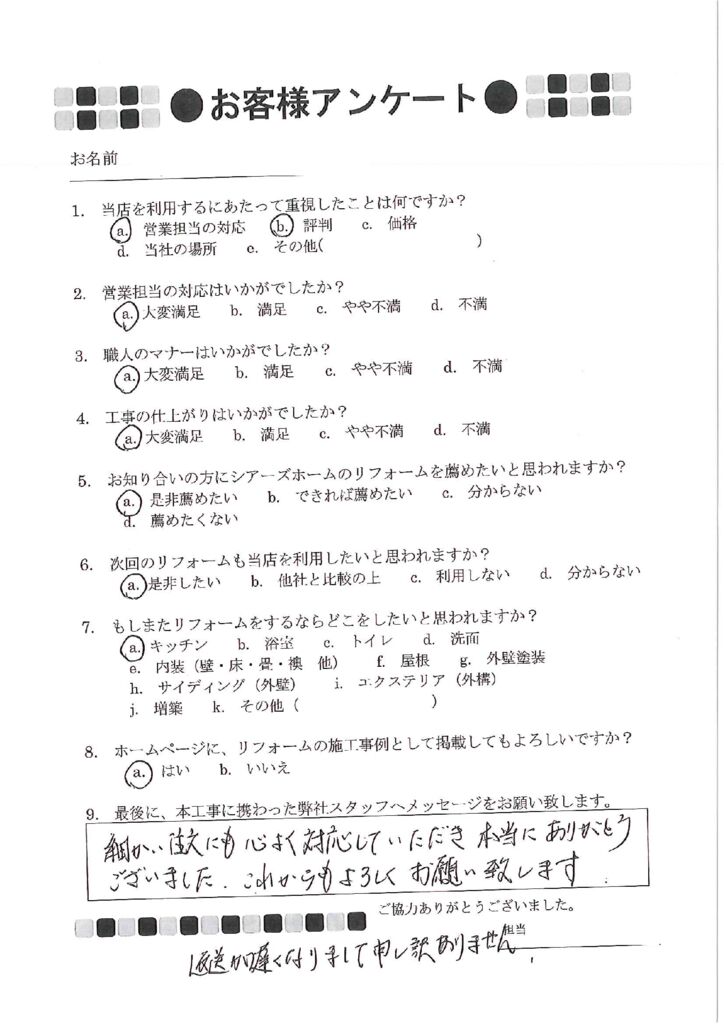 ●お客様アンケート●
お名前
1. 当店を利用するにあたって重視したことは何ですか?
a. 営業担当の対応 b. 評判 c. 価格
d. 当社の場所 e. その他( )
2. 営業担当の対応はいかがでしたか?
a. 大変満足 b. 満足 c. やや不満 d. 不満
3. 職人のマナーはいかがでしたか?
a. 大変満足 b. 満足 c. やや不満 d. 不満
4. 工事の仕上がりはいかがでしたか?
a. 大変満足 b. 満足 c. やや不満 d. 不満
5. お知り合いの方にシアーズホームのリフォームを薦めたいと思われますか?
a. 是非薦めたい b. できれば薦めたい c. 分からない
d. 薦めたくない
6. 次回のリフォームも当店を利用したいと思われますか?
a. 是非したい b. 他社と比較の上 c. 利用しない d. 分からない
7. もしまたリフォームをするならどこをしたいと思われますか?
a. キッチン b. 浴室 c. トイレ d. 洗面
e. 内装(壁・床・畳・襖 他) f. 屋根 g. 外壁塗装
h. サイディング(外壁) i. エクステリア(外構)
j. 増築 k. その他( )
8. ホームページに、リフォームの施工事例として掲載してもよろしいですか?
a. はい b. いいえ
9. 最後に、本工事に携わった弊社スタッフへメッセージをお願い致します。
細かい注文にも心よく対応していただき本当にありがとう
ございました。これからもよろしくお願い致します
ご協力ありがとうございました。
担当
返送が遅くなりまして申し訳ありません。